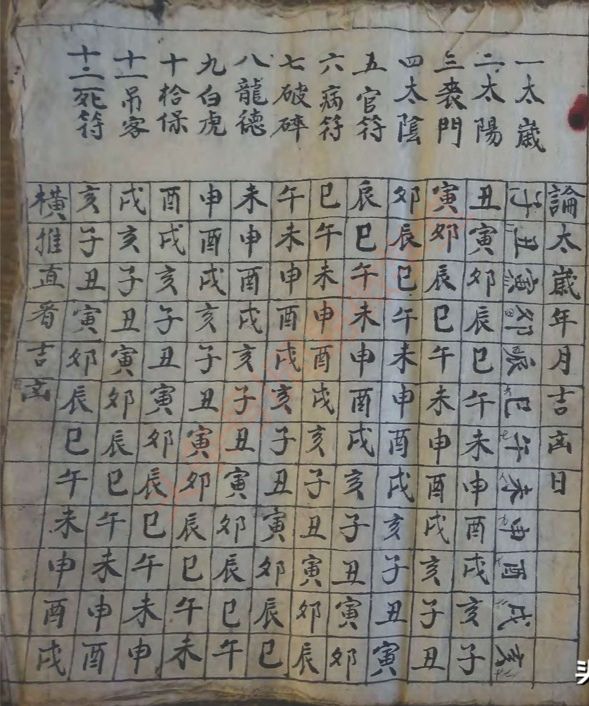 一太歲
二太陽
三喪門
四太陰
五官符
六病符
七破碎
八龍德
九白虎
十拾保
十一吊客
十二死符
論太歲年月吉凶日
子丑寅卯辰巳午未申酉戌亥
丑寅卯辰巳午未申酉戌亥子
寅卯辰巳午未申酉戌亥子丑
卯辰巳午未申酉戌亥子丑寅
辰巳午未申酉戌亥子丑寅卯
巳午未申酉戌亥子丑寅卯辰
午未申酉戌亥子丑寅卯辰巳
未申酉戌亥子丑寅卯辰巳午
申酉戌亥子丑寅卯辰巳午未
酉戌亥子丑寅卯辰巳午未申
戌亥子丑寅卯辰巳午未申酉
亥子丑寅卯辰巳午未申酉戌
橫推直看吉凶